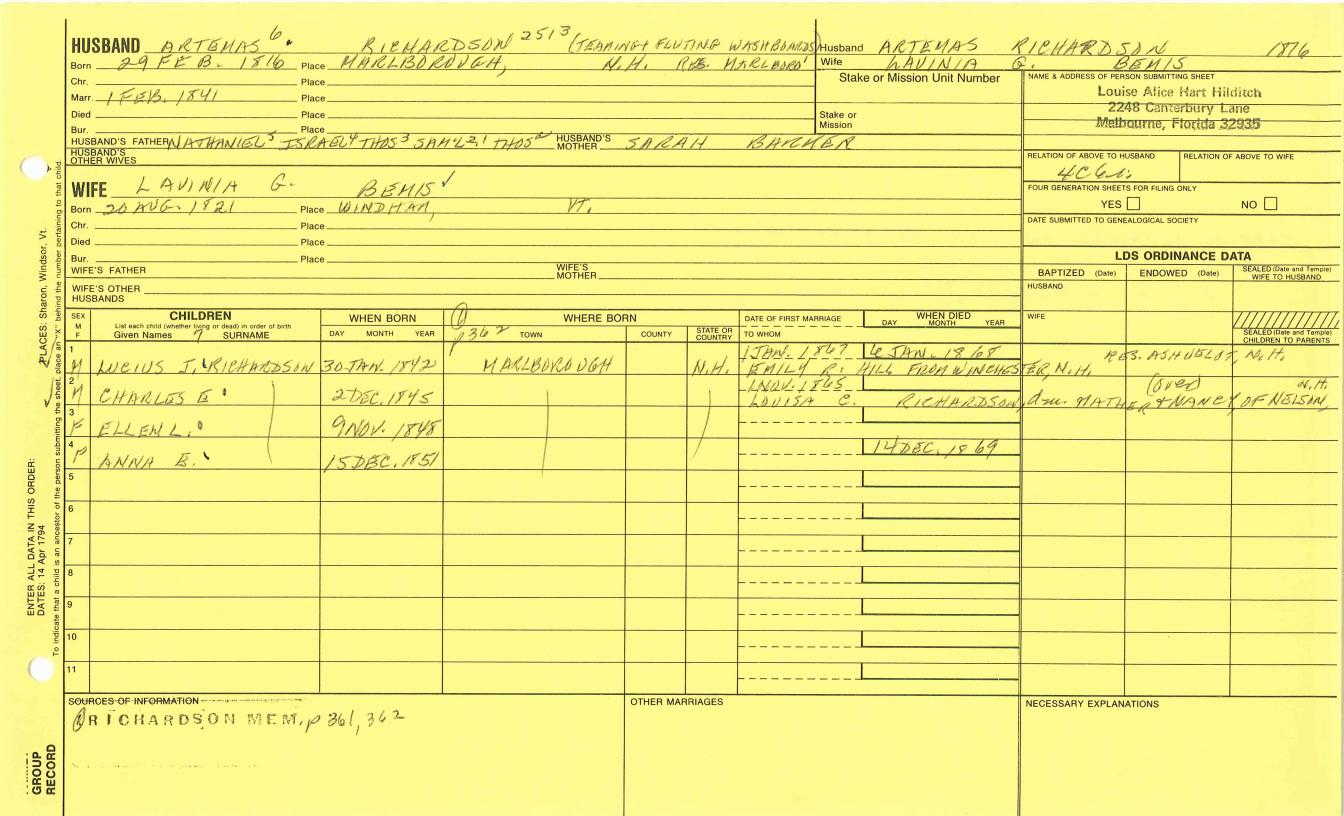 HUSBAND ARTEMAS 6. RICHARDSON 2513 (TEAMING & FLUTING WASHBOARDS)
Born 29 FEB. 1816 Place MARLBOROUGH, N.H. RES. MARLBORO'
Chr. Place
Marr. 1 FEB. 1841 Place
Died Place
Bur. Place
HUSBAND'S FATHER NATHANIEL5 ISRAEL4 THOS3 SAM'L2 THOS HUSBAND'S MOTHER SARAH
HUSBAND'S OTHER WIVES
Husband ARTEMAS RICHARDSON 1816
Wife LAVINIA G. BEMIS
Stake or Mission Unit Number
Stake or Mission
NAME & ADDRESS OF PERSON SUBMITTING SHEET
Louise Alice Hart Hilditch
2248 Canterbury Lane
Melbourne, Florida 32935
RELATION OF ABOVE TO HUSBAND RELATION OF ABOVE TO WIFE
FOUR GENERATION SHEETS FOR FILING ONLY
YES NO
DATE SUBMITTED TO GENEALOGICAL SOCIETY
WIFE LAVINIA G. BEMIS ✓
Born 20 AUG. 1821 Place WINDHAM, VT.
Chr. Place
Died Place
Bur. Place
WIFE'S FATHER WIFE'S MOTHER
WIFE'S OTHER HUSBANDS
LDS ORDINANCE DATA
BAPTIZED (Date) ENDOWED (Date) SEALED (Date and Temple) WIFE TO HUSBAND
HUSBAND
WIFE
SEALED (Date and Temple) CHILDREN TO PARENTS
SEX M F CHILDREN WHEN BORN WHERE BORN DATE OF FIRST MARRIAGE WHEN DIED
List each child (whether living or dead) in order of birth
Given Names 7 SURNAME DAY MONTH YEAR p 362 TOWN COUNTY STATE OR COUNTRY TO WHOM DAY MONTH YEAR
1 M LUCIUS J. RICHARDSON 30 JAN. 1842 MARLBOROUGH N.H. 1 JAN. 1867 6 JAN. 1868 RES. ASHUELOT, N.H.
EMILY R. HILL FROM WINCHESTER, N.H.
2 M CHARLES E 2 DEC. 1845 1 NOV. 1865 (over) N.H.
LOUISA C. RICHARDSON, dau. NATHER & NANCY OF NELSON,
3 F ELLEN L. 9 NOV. 1848
4 F ANNA E. 15 DEC. 1851 14 DEC. 1869
5
6
7
8
9
10
11
SOURCES OF INFORMATION
① RICHARDSON MEM. p 361, 362
OTHER MARRIAGES
NECESSARY EXPLANATIONS
ENTER ALL DATA IN THIS ORDER:
DATES: 14 Apr 1794
PLACES: Sharon, Windsor, Vt.
To indicate that a child is an ancestor of the person submitting the sheet, place an "X" behind the number pertaining to that child.
GROUP
RECORD